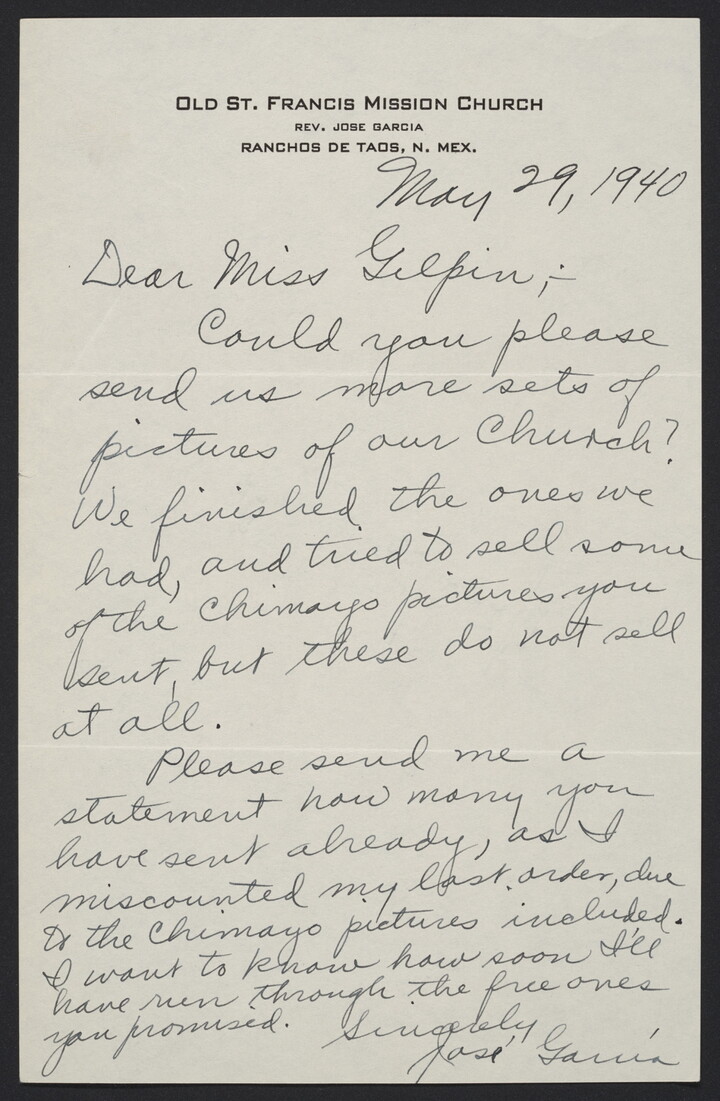 OLD ST. FRANCIS MISSION CHURCH
REV. JOSE GARCIA
RANCHOS DE TAOS, N. MEX.
May 29, 1940
Dear Miss Gilpin,-
Could you please
send us more sets of
pictures of our Church?
We finished the ones we
had, and tried to sell some
of the Chimayo pictures you
sent, but these do not sell
at all.
Please send me a
statement how many you
have sent already, as I
miscounted my last order, due
to the Chimayo pictures included.
I want to know how soon I'll
have run through the free ones
you promised. Sincerely
José García